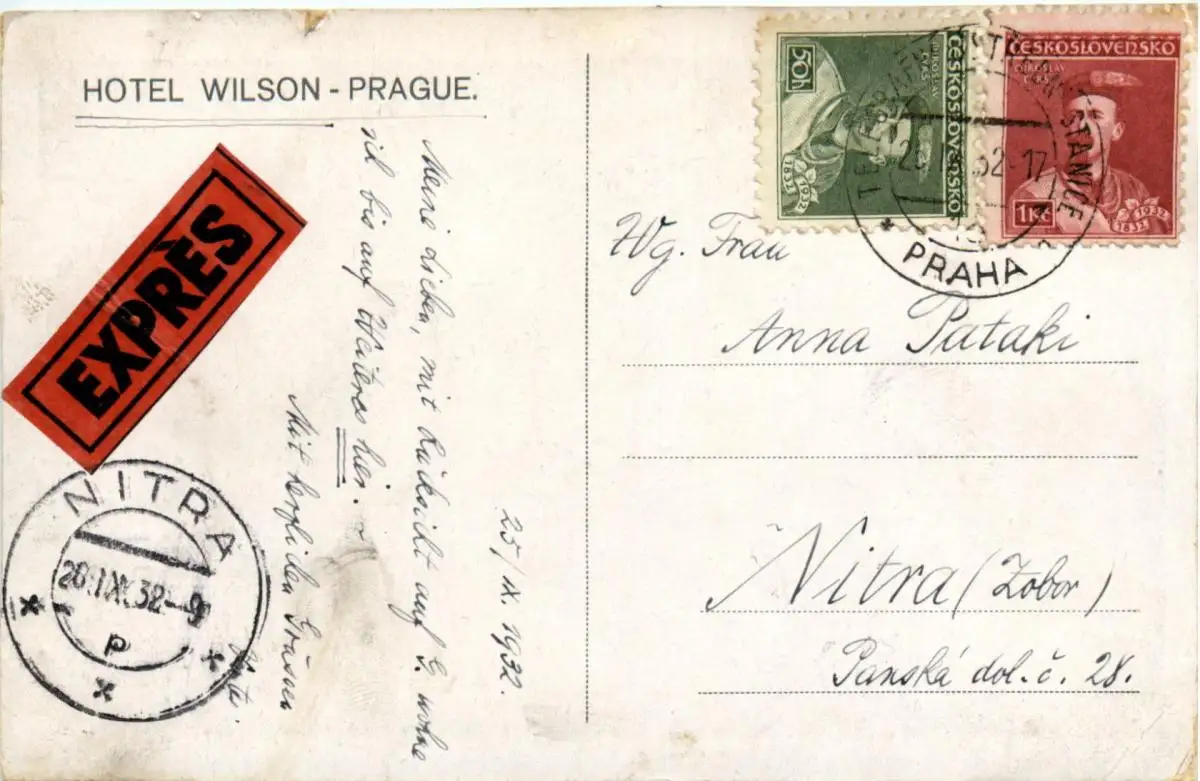 HOTEL WILSON - PRAGUE.
EXPRÈS
25/IX. 1932.
Meine Lieben, mit Rücksicht auf G. wohne
ich bis auf Weiteres hier.
Mit herzlichen Grüssen
NITRA
26.IX.32--9
P
50h
ČESKOSLOVENSKO
MIROSLAV
TYRŠ
1832 1932
ČESKOSLOVENSKO
MIROSLAV
TYRŠ
1Kč
1832 1932
STANICE
32-17
PRAHA
Wg. Frau
Anna Pataki
Nitra (Zobor)
Panská dol. č. 28.